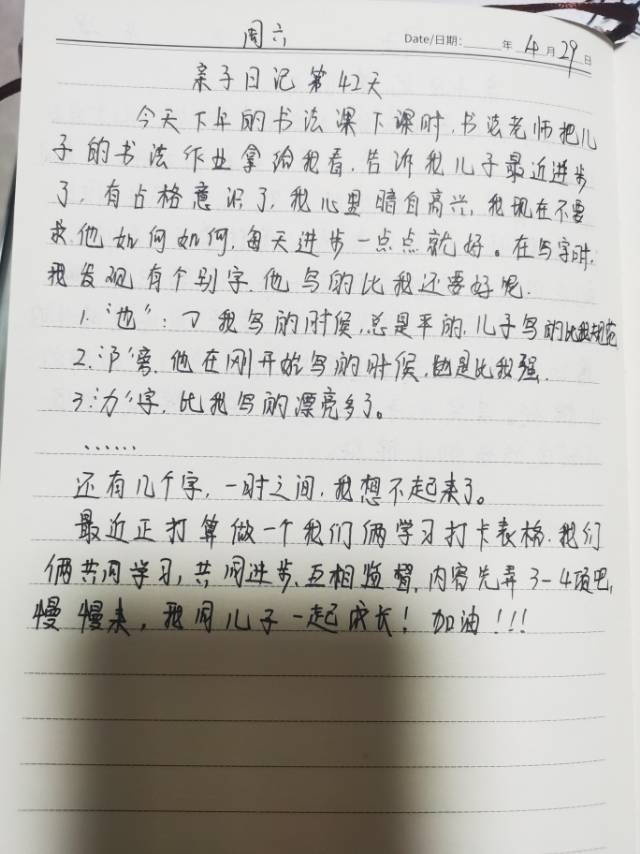 周六 Date/日期: 年 4月29日
亲子日记第42天
今天下午的书法课下课时,书法老师把儿
子的书法作业拿给我看,告诉我儿子最近进步
了,有占格意识了,我心里暗自高兴,我现在不要
求他如何如何,每天进步一点点就好。在写字时,
我发现有个别字,他写的比我还要好呢.
1.“也”:㇆我写的时候,总是平的,儿子写的比我规范
2.“阝”旁,他在刚开始写的时候,也是比我强.
3.“力”字,比我写的漂亮多了。
……
还有几个字,一时之间,我想不起来了。
最近正打算做一个我们俩学习打卡表格.我们
俩共同学习,共同进步、互相监督,内容先弄3-4项吧,
慢慢来,我同儿子一起成长!加油!!!